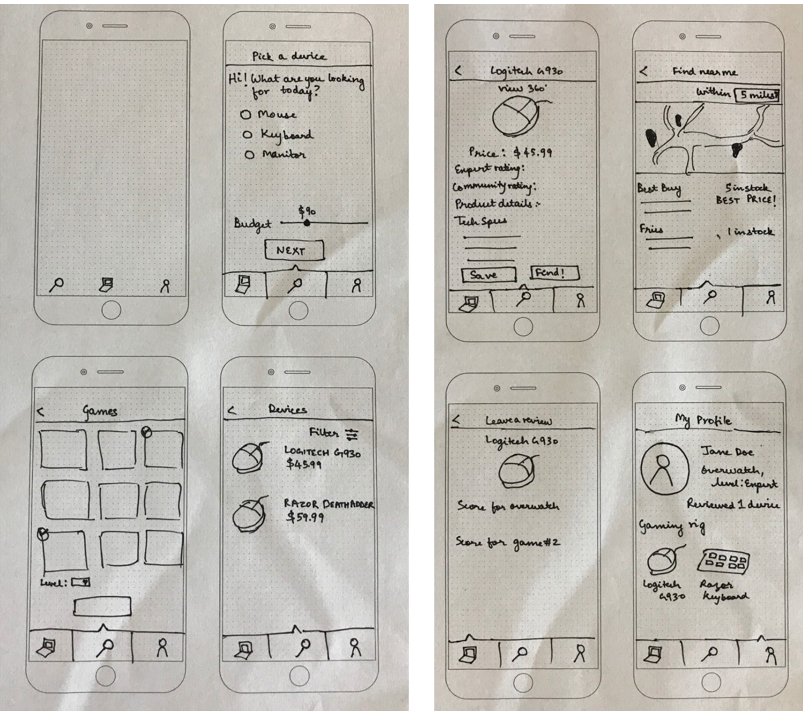 Pick a device
Hi! What are you looking
for today?
Mouse
Keyboard
Monitor
$90
Budget
NEXT
< Games
Level:
< Devices
Filter
LOGITECH G930
$45.99
RAZOR DEATHADDER
$59.99
< Logitech G930
view 360°
Price: $45.99
Expert rating:
Community rating:
Product details :-
Tech Specs
Save
Find!
< Find near me
within 5 miles
Best Buy
5 in stock
BEST PRICE!
Fries
1 in stock
< Leave a review
Logitech G930
Score for overwatch
Score for game #2
My Profile
Jane Doe
overwatch,
level: Expert
Reviewed 1 device
Gaming rig
Logitech
G930
Razor
Keyboard